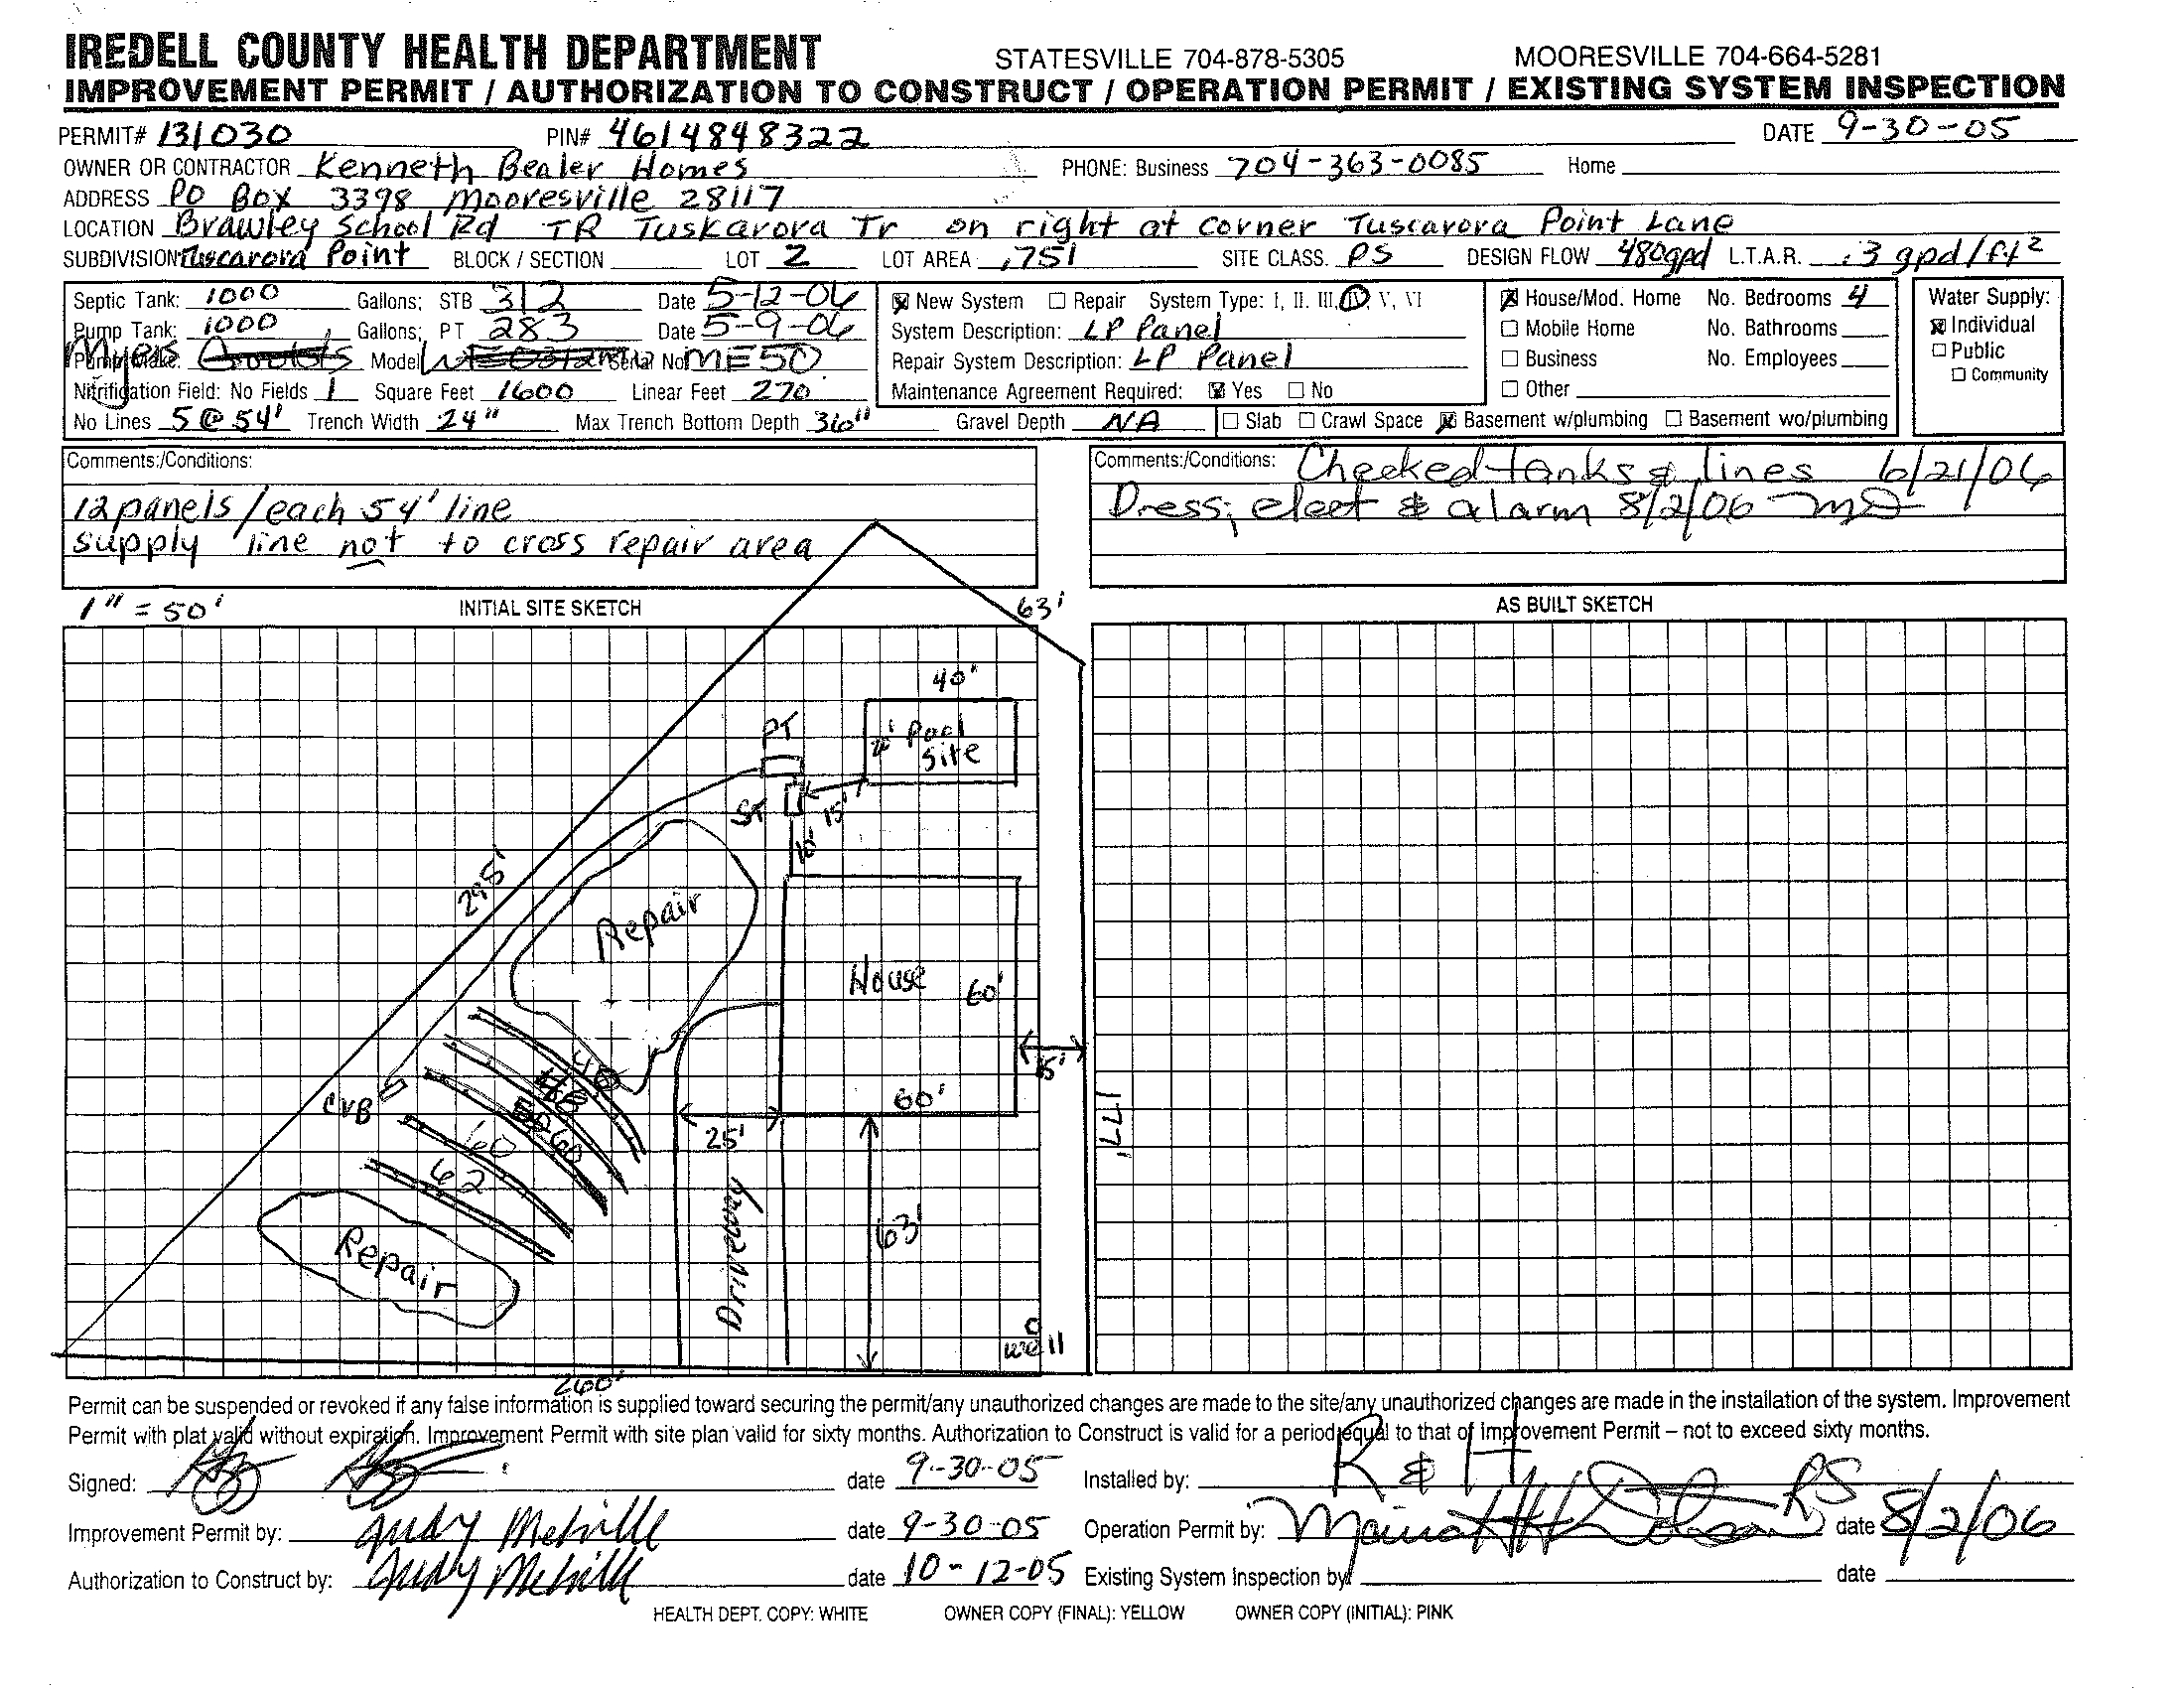 IREDELL COUNTY HEALTH DEPARTMENT STATESVILLE 704-878-5305 MOORESVILLE 704-664-5281
IMPROVEMENT PERMIT / AUTHORIZATION TO CONSTRUCT / OPERATION PERMIT / EXISTING SYSTEM INSPECTION
PERMIT# 131030 PIN# 4614848322 DATE 9-30-05
OWNER OR CONTRACTOR Kenneth Bealer Homes PHONE: Business 704-363-0085 Home
ADDRESS PO Box 3398 Mooresville 28117
LOCATION Brawley School Rd TR Tuskarora Tr on right at corner Tuscarora Point Lane
SUBDIVISION Tuscarora Point BLOCK / SECTION LOT 2 LOT AREA .751 SITE CLASS. PS DESIGN FLOW 480gpd L.T.A.R. .3 gpd/ft2
Septic Tank: 1000 Gallons; STB 312 Date 5-12-06 New System Repair System Type: I, II. III, IV, V, VI House/Mod. Home No. Bedrooms 4 Water Supply:
Pump Tank: 1000 Gallons; PT 283 Date 5-9-06 System Description: LP Panel Mobile Home No. Bathrooms Individual
Myers Pump Make: Model Serial No ME50 Repair System Description: LP Panel Business No. Employees Public
Nitrification Field: No Fields 1 Square Feet 1600 Linear Feet 270 Maintenance Agreement Required: Yes No Other Community
No Lines 5 @ 54' Trench Width 24" Max Trench Bottom Depth 36" Gravel Depth NA Slab Crawl Space Basement w/plumbing Basement wo/plumbing
Comments:/Conditions:
12 panels/each 54' line
supply line not to cross repair area
Comments:/Conditions: Checked tanks & lines 6/21/06
Dress, elect & alarm 8/2/06
1" = 50' INITIAL SITE SKETCH 63' AS BUILT SKETCH
40'
PT
Pool
Site
ST 15'
10'
295'
Repair
House 60'
15'
CVB
48
60'
60
60
62
25'
177'
Driveway
63'
Repair
well
260'
Permit can be suspended or revoked if any false information is supplied toward securing the permit/any unauthorized changes are made to the site/any unauthorized changes are made in the installation of the system. Improvement
Permit with plat valid without expiration. Improvement Permit with site plan valid for sixty months. Authorization to Construct is valid for a period equal to that of Improvement Permit – not to exceed sixty months.
Signed: date 9-30-05 Installed by: R & H
Improvement Permit by: Judy Melville date 9-30-05 Operation Permit by: RS date 8/2/06
Authorization to Construct by: Judy Melville date 10-12-05 Existing System Inspection by date
HEALTH DEPT. COPY: WHITE OWNER COPY (FINAL): YELLOW OWNER COPY (INITIAL): PINK